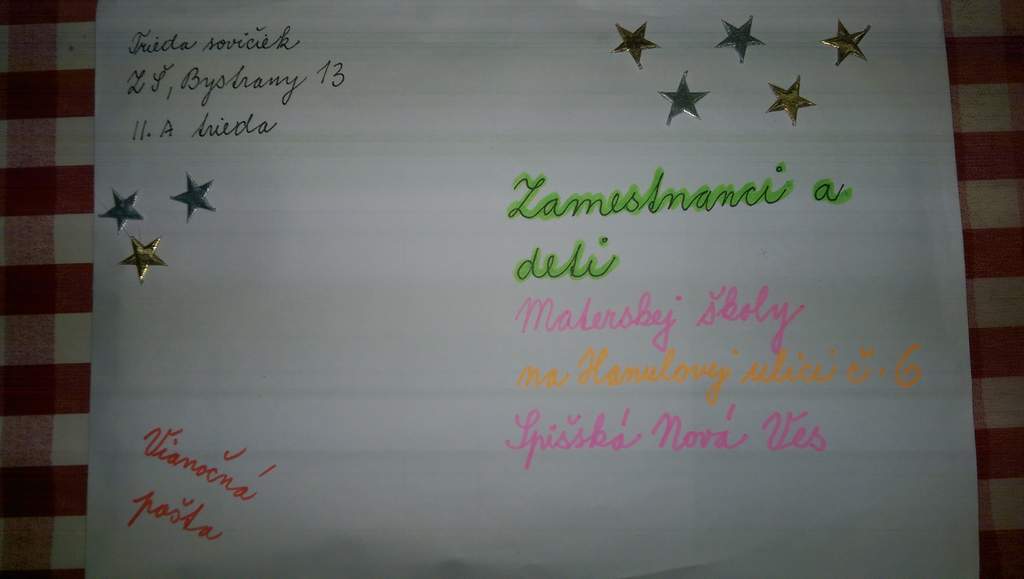 Trieda sovičiek
ZŠ, Bystrany 13
II. A trieda
Zamestnanci a
deti
Materskej školy
na Hanulovej ulici č. 6
Spišská Nová Ves
Vianočná
pošta